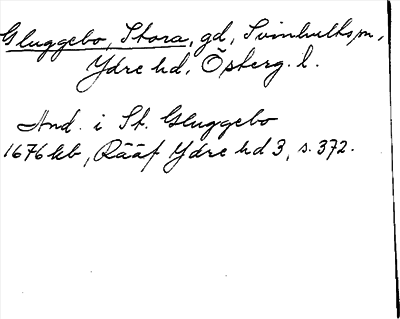 Gluggebo, Stora, gd, Svinhults sn,
Ydre hd, Österg. l.
And. i St. Gluggebo
1676 kb, Rääf Ydre hd 3, s. 372.